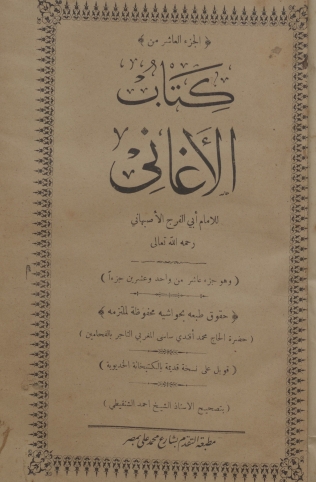 ﴿ الجزء العاشر من ﴾
كتاب
الأغاني
للامام أبي الفرج الأصبهاني
رحمه الله تعالى
( وهو جزء عاشر من واحد وعشرين جزءاً )
﴿ حقوق طبعه بحواشيه محفوظة لملتزمه ﴾
( حضرة الحاج محمد أفندي ساسى المغربي التاجر بالفحامين )
( قوبل على نسخة قديمة بالكتبخانة الخديوية )
( بتصحيح الاستاذ الشيخ احمد الشنقيطي )
مطبعة التقدم بشارع محمد علي بمصر